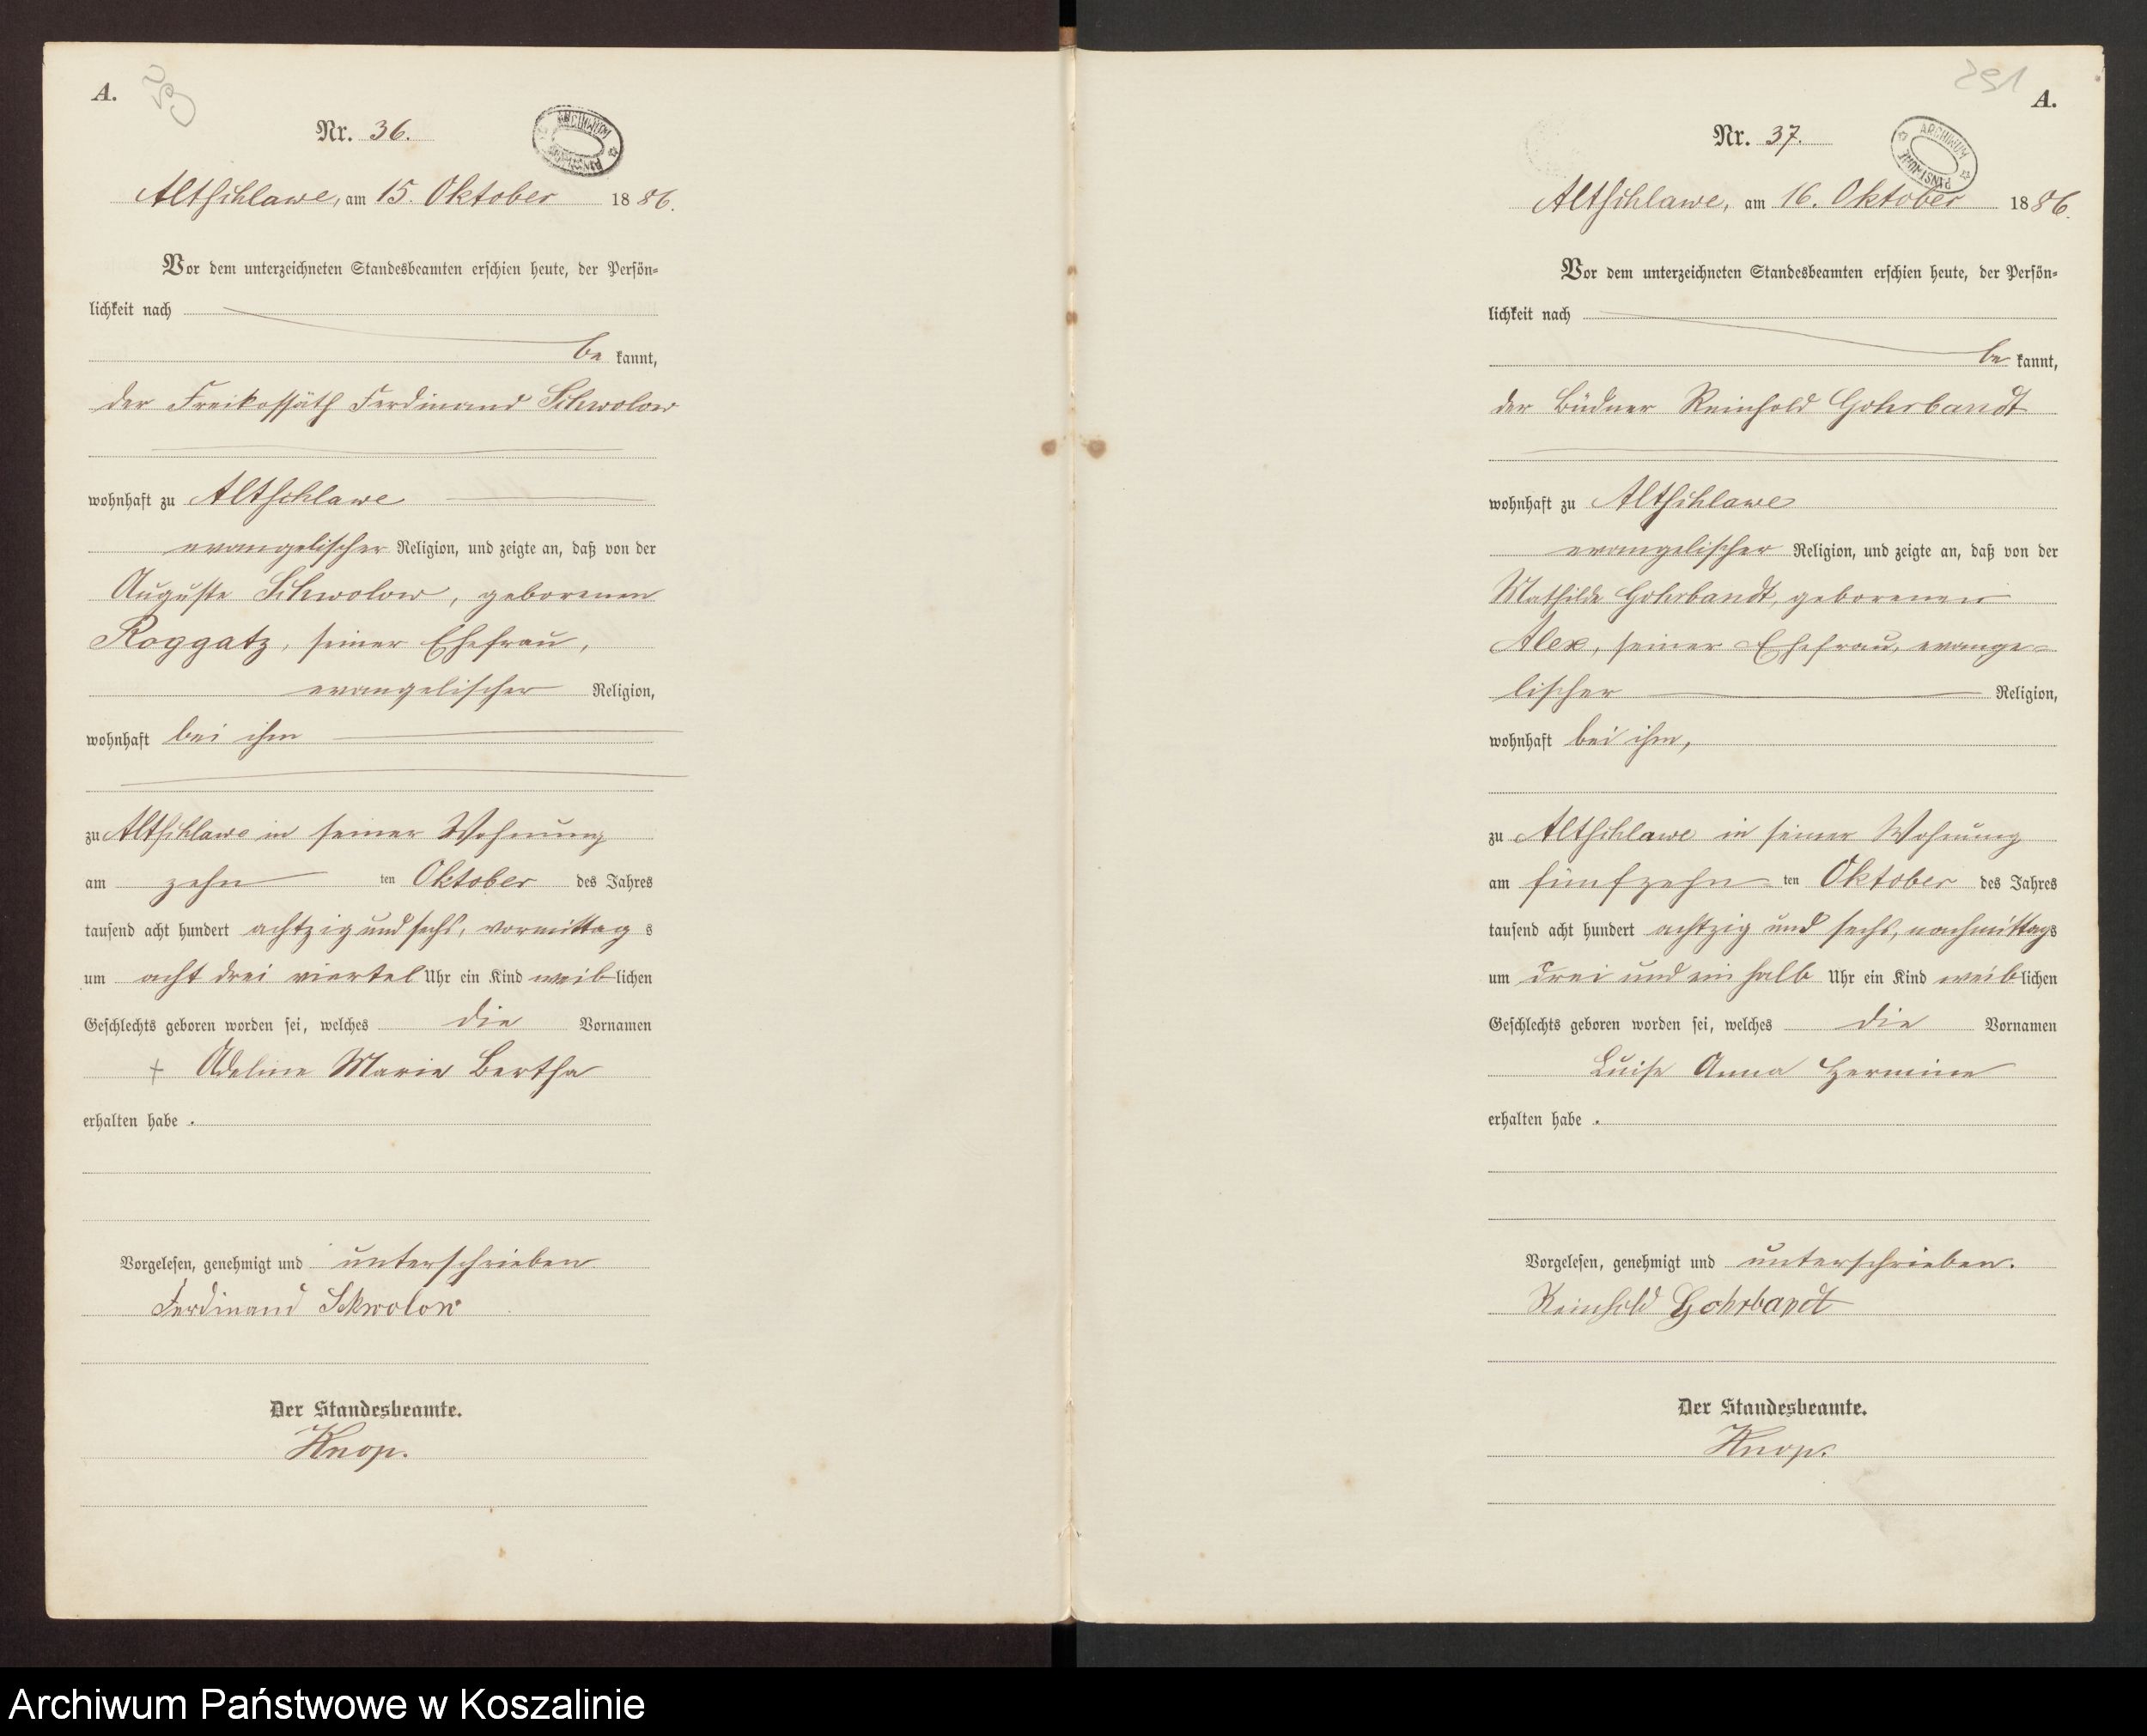 A.
Nr. 36.
ARCHIWUM PAŃSTWOWE
Altschlawe, am 15. Oktober 1886.
Vor dem unterzeichneten Standesbeamten erschien heute, der Persön=
lichkeit nach
be kannt,
der Freikossäth Ferdinand Schwolow
wohnhaft zu Altschlawe
evangelischer Religion, und zeigte an, daß von der
Auguste Schwolow, geborenen
Roggatz, seiner Ehefrau,
evangelischer Religion,
wohnhaft bei ihm
zu Altschlawe in seiner Wohnung
am zehn ten Oktober des Jahres
tausend acht hundert achtzig und sechs, vormittag s
um acht drei viertel Uhr ein Kind weib lichen
Geschlechts geboren worden sei, welches die Vornamen
+ Adeline Marie Bertha
erhalten habe .
Vorgelesen, genehmigt und unterschrieben
Ferdinand Schwolow
Der Standesbeamte.
Knop.
251
A.
Nr. 37.
ARCHIWUM PAŃSTWOWE
Altschlawe, am 16. Oktober 1886.
Vor dem unterzeichneten Standesbeamten erschien heute, der Persön=
lichkeit nach
be kannt,
der Büdner Reinhold Gohrbandt
wohnhaft zu Altschlawe
evangelischer Religion, und zeigte an, daß von der
Mathilde Gohrbandt, geborenen
Alex, seiner Ehefrau, evange=
lischer Religion,
wohnhaft bei ihm,
zu Altschlawe in seiner Wohnung
am fünfzehn ten Oktober des Jahres
tausend acht hundert achtzig und sechs, nachmittags
um drei und ein halb Uhr ein Kind weib lichen
Geschlechts geboren worden sei, welches die Vornamen
Luise Anna Hermine
erhalten habe .
Vorgelesen, genehmigt und unterschrieben.
Reinhold Gohrbandt
Der Standesbeamte.
Knop.
Archiwum Państwowe w Koszalinie